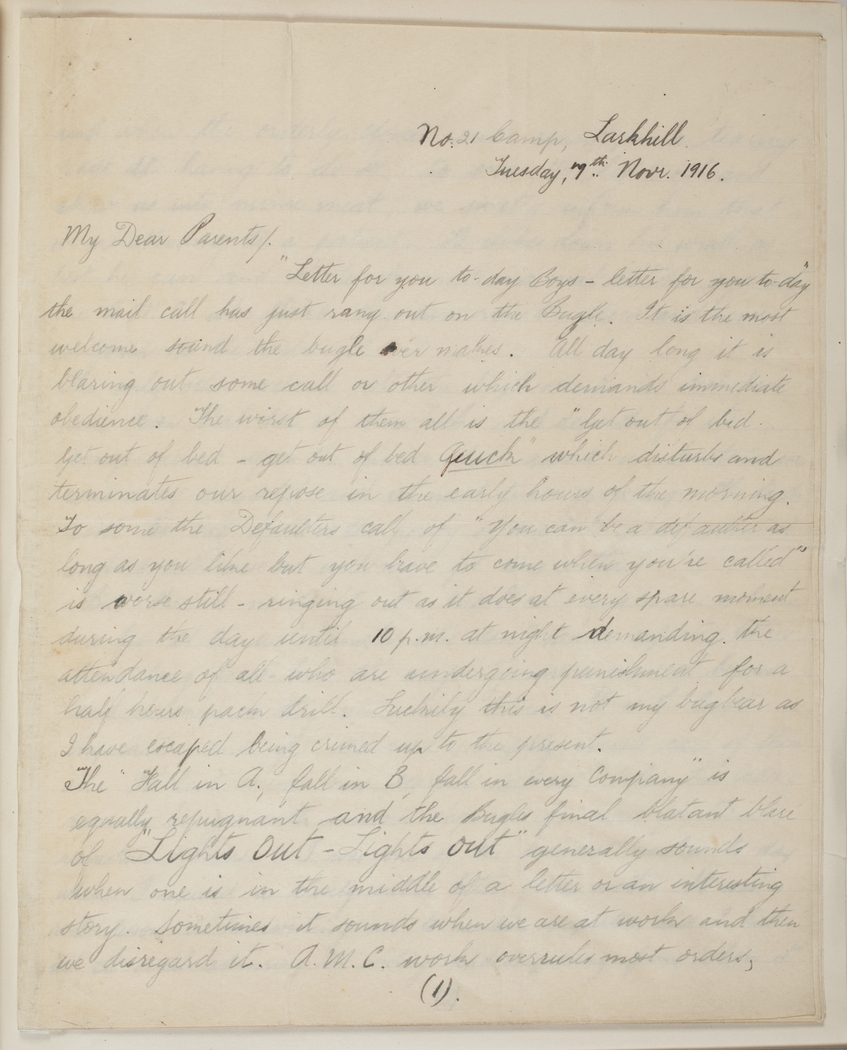 No. 21 Camp, Larkhill.
Tuesday, 7th. Novr. 1916.
My Dear Parents/.
"Letter for you to-day Boys - letter for you to-day"
the mail call has just rang out on the Bugle. It is the most
welcome sound the bugle ever makes. All day long it is
blaring out some call or other which demands immediate
obedience. The worst of them all is the "Get out of bed.
Get out of bed - get out of bed Quick" which disturbs and
terminates our repose in the early hours of the morning.
To some the Defaulters call of "You can be a defaulter as
long as you like but you have to come when you're called"
is worse still - ringing out as it does at every spare moment
during the day until 10 p.m. at night demanding the
attendance of all who are undergoing punishment for a
half hours pack drill. Luckily this is not my bugbear as
I have escaped being crimed up to the present.
The "Fall in A, fall in B, fall in every Company" is
equally repugnant and the Bugles final blatant blare
of "Lights Out - Lights out" generally sounds
when one is in the middle of a letter or an interesting
story. Sometimes it sounds when we are at work and then
we disregard it. A.M.C. work overrules most orders,
(1).